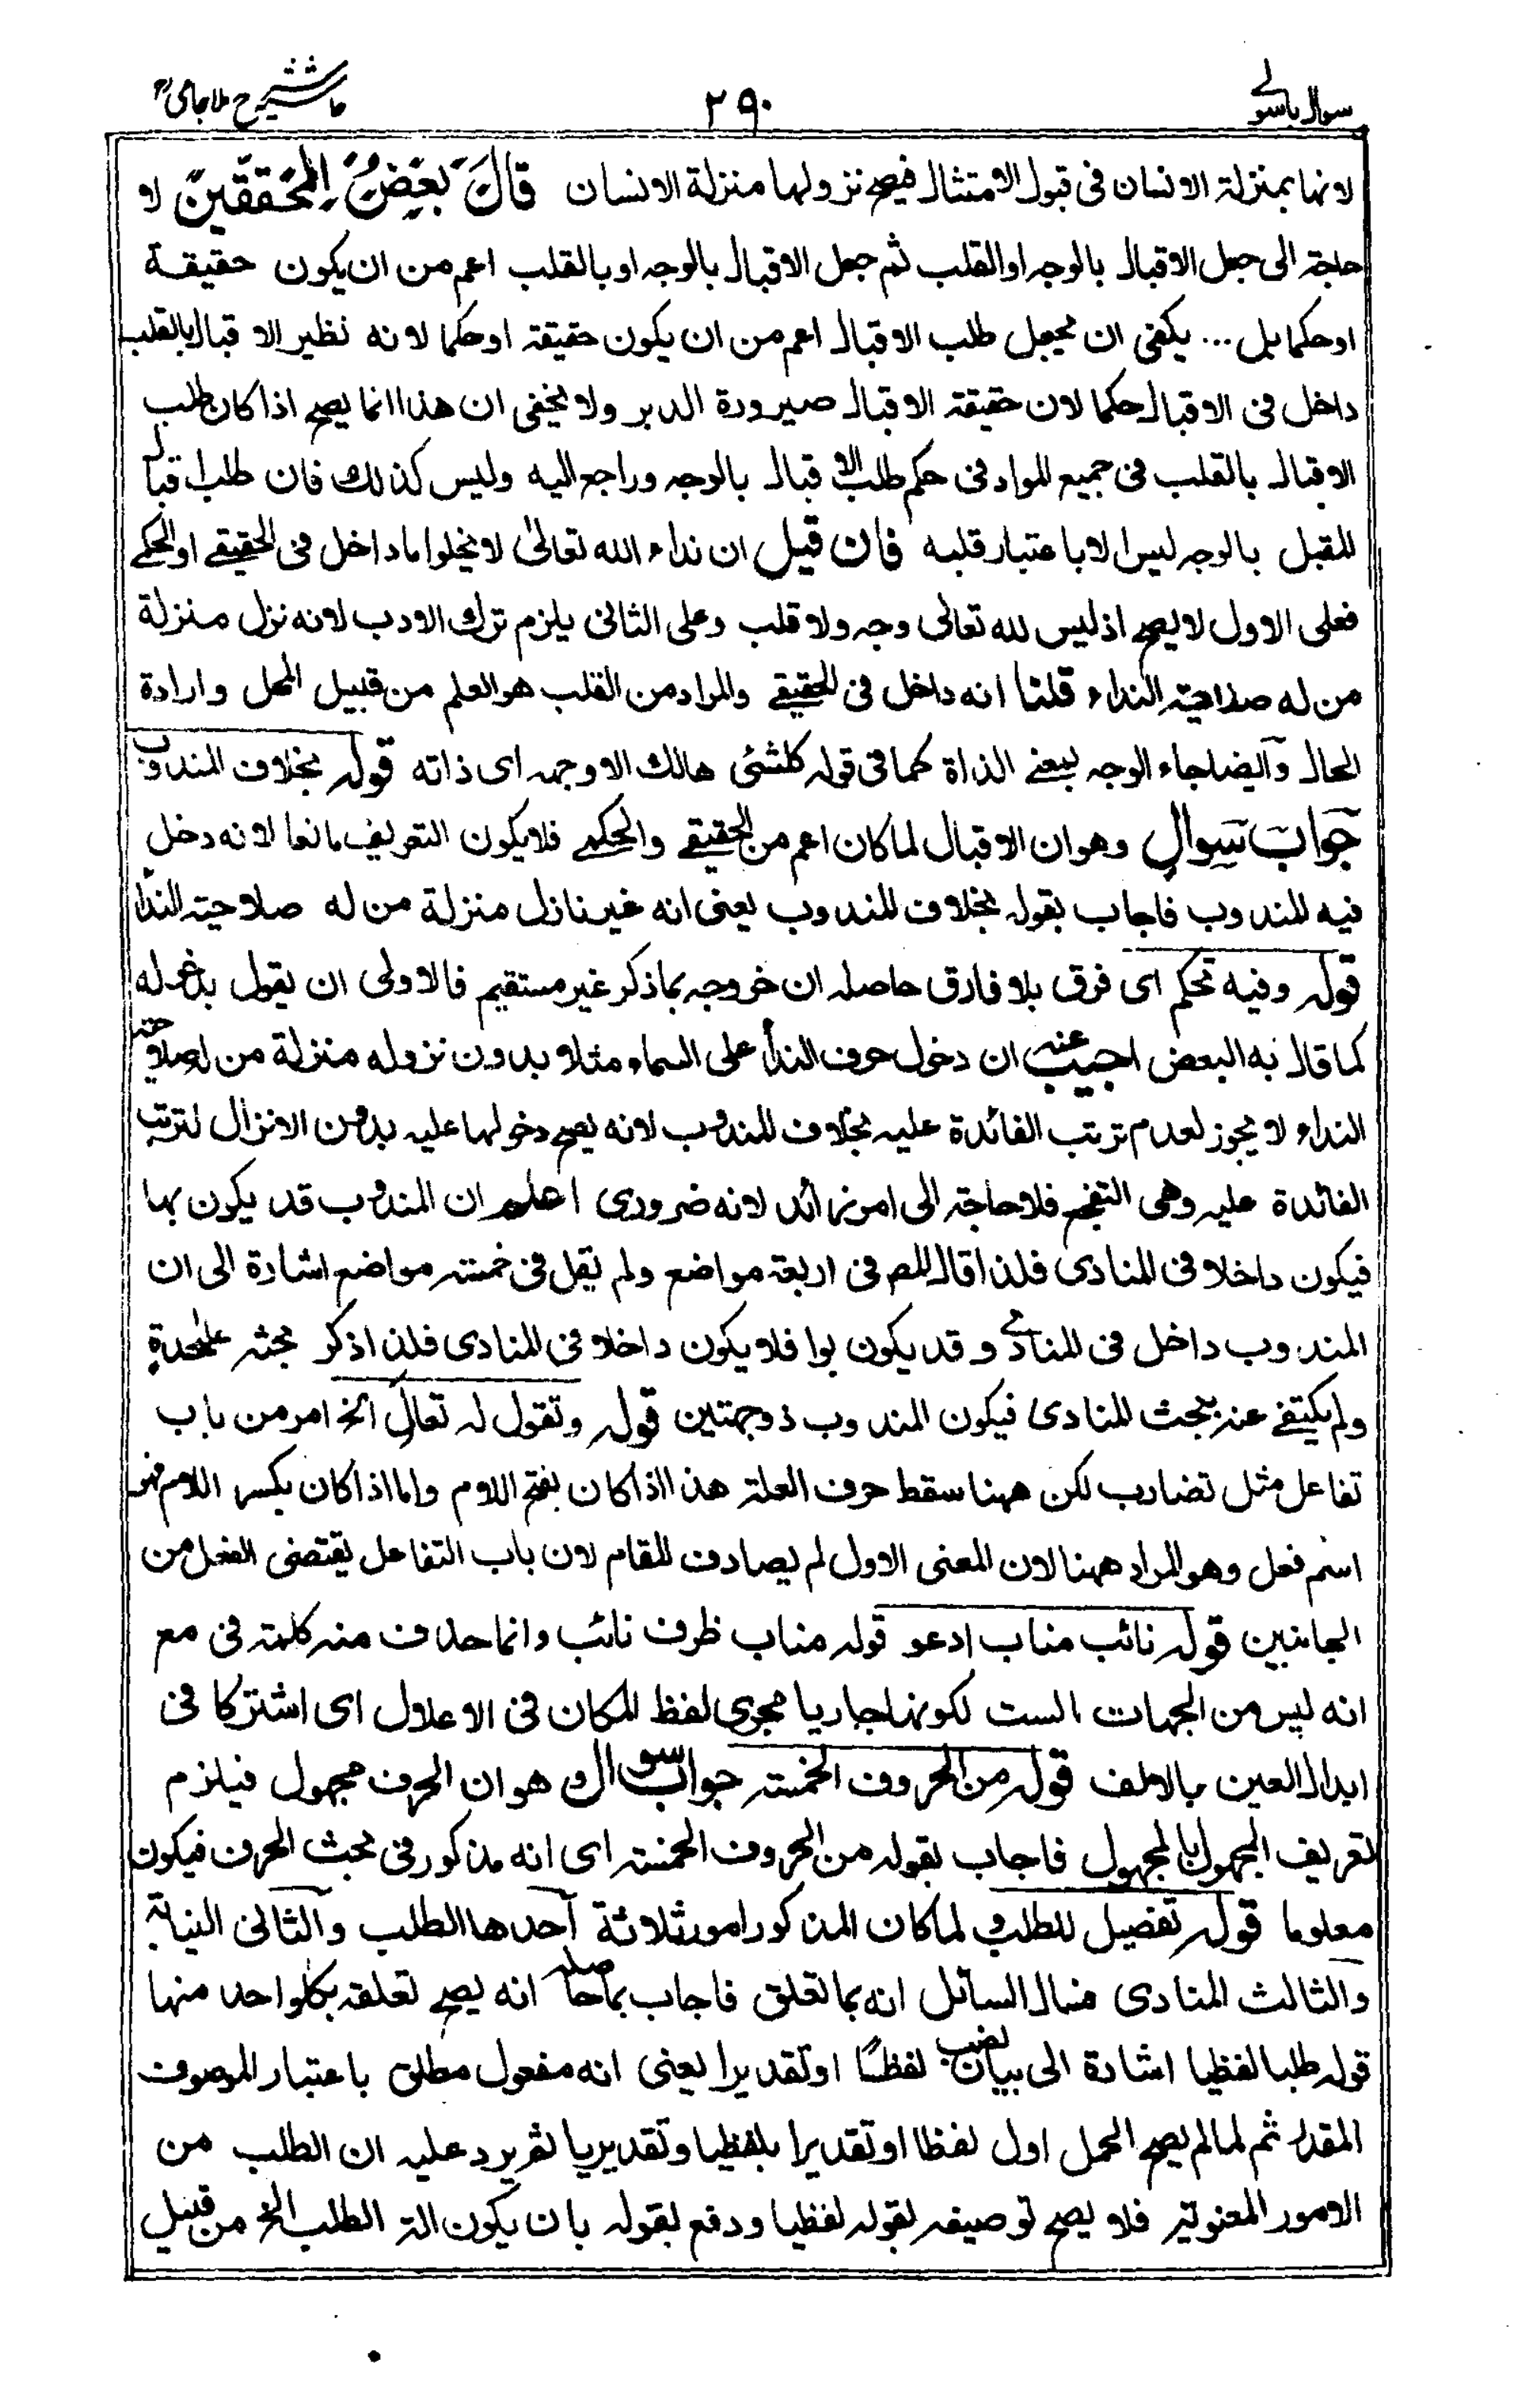 سوال باسولے
٢٩٠
حاشیہ شرح ملا جامی
لانها بمنزلة الانسان فى قبول الامتثال فيصح نزولها منزلة الانسان قال بعض المحققين لا
حاجة الى جعل الاقبال بالوجه او القلب ثم جعل الاقبال بالوجه او بالقلب اعم من ان يكون حقيقة
او حكما بل ... يكفى ان يجعل طلب الاقبال اعم من ان يكون حقيقة او حكما لانه نظير الاقبال بالقلب
داخل فى الاقبال حكما لان حقيقة الاقبال صيرورة الدبر ولا يخفى ان هذا انما يصح اذا كان طلب
الاقبال بالقلب فى جميع المواد فى حكم طلب الاقبال بالوجه وراجع اليه وليس كذلك فان طلب اقبال
المقبل بالوجه ليس الا باعتبار قلبه فان قيل ان نداء الله تعالى لا يخلوا ما داخل فى الحقيقے او الحكمے
فعلى الاول لا يصح اذ ليس لله تعالى وجه ولا قلب وعلى الثانى يلزم ترك الادب لانه نزل منزلة
من له صلاحية النداء قلنا انه داخل فى الحقيقے والمراد من القلب هو العلم من قبيل المحل وارادة
الحال وايضا جاء الوجه بمعنے الذاة كما فى قوله كلشئ هالك الا وجهه اى ذاته قوله بخلاف المندوب
جواب سوال وهو ان الاقبال لما كان اعم من الحقيقے والحكمے فلا يكون التعريف مانعا لانه دخل
فيه المندوب فاجاب بقوله بخلاف المندوب يعنى انه غير نازل منزلة من له صلاحية النداء
قوله وفيه تحكم اى فرق بلا فارق حاصله ان خروجه بما ذكر غير مستقيم فالاولى ان يقول بدخوله
كما قال به البعض اجيب عنه ان دخول حرف النداء على السماء مثلا بدون نزوله منزلة من له صلاحية
النداء لا يجوز لعدم ترتب الفائدة عليه بخلاف المندوب لانه يصح دخولها عليه بدون الانزال لترتب
الفائدة عليه وهى التفجع فلا حاجة الى امر زائد لانه ضرورى اعلم ان المندوب قد يكون بها
فيكون داخلا فى المنادى فلذا قال المص فى اربعة مواضع ولم يقل فى خمسة مواضع اشارة الى ان
المندوب داخل فى المنادے وقد يكون بوا فلا يكون داخلا فى المنادى فلذا ذكر بحثه علىٰحدة
ولم يكتفے عنه ببحث المنادى فيكون المندوب ذو جهتين قوله وتقول له تعال الخ امر من باب
تفاعل مثل تضارب لكن ههنا سقط حرف العلة هذا اذا كان بفتح اللام واما اذا كان بكسر اللام فهو
اسم فعل وهو المراد ههنا لان المعنى الاول لم يصادف المقام لان باب التفاعل يقتضى الفعل من
الجانبين قوله نائب مناب ادعو قوله مناب ظرف نائب وانما حذف منه كلمة فى مع
انه ليس من الجهات الست لكونها جاريا مجرى لفظ المكان فى الاعلال اى اشتركا فى
ابدال العين بالالف قوله من الحروف الخمسة جواب سوال وهو ان الحرف مجهول فيلزم
تعريف المجهول بالمجهول فاجاب بقوله من الحروف الخمسة اى انه مذكور فى بحث الحرف فيكون
معلوما قوله تفصيل للطلب لما كان المذكور امور ثلاثة احدها الطلب والثانى النيابة
والثالث المنادى فسال السائل انه بما تعلق فاجاب بما حاصله انه يصح تعلقه بكلواحد منها
قوله طلبا لفظيا اشارة الى بيان نصب لفظًا او تقديرا يعنى انه مفعول مطلق باعتبار الموصوف
المقدر ثم لما لم يصح الحمل اول لفظا او تقديرا بلفظيا وتقديريا ثم يرد عليه ان الطلب من
الامور المعنوية فلا يصح توصيفه بقوله لفظيا ودفع بقوله بان يكون الة الطلب الخ من قبيل